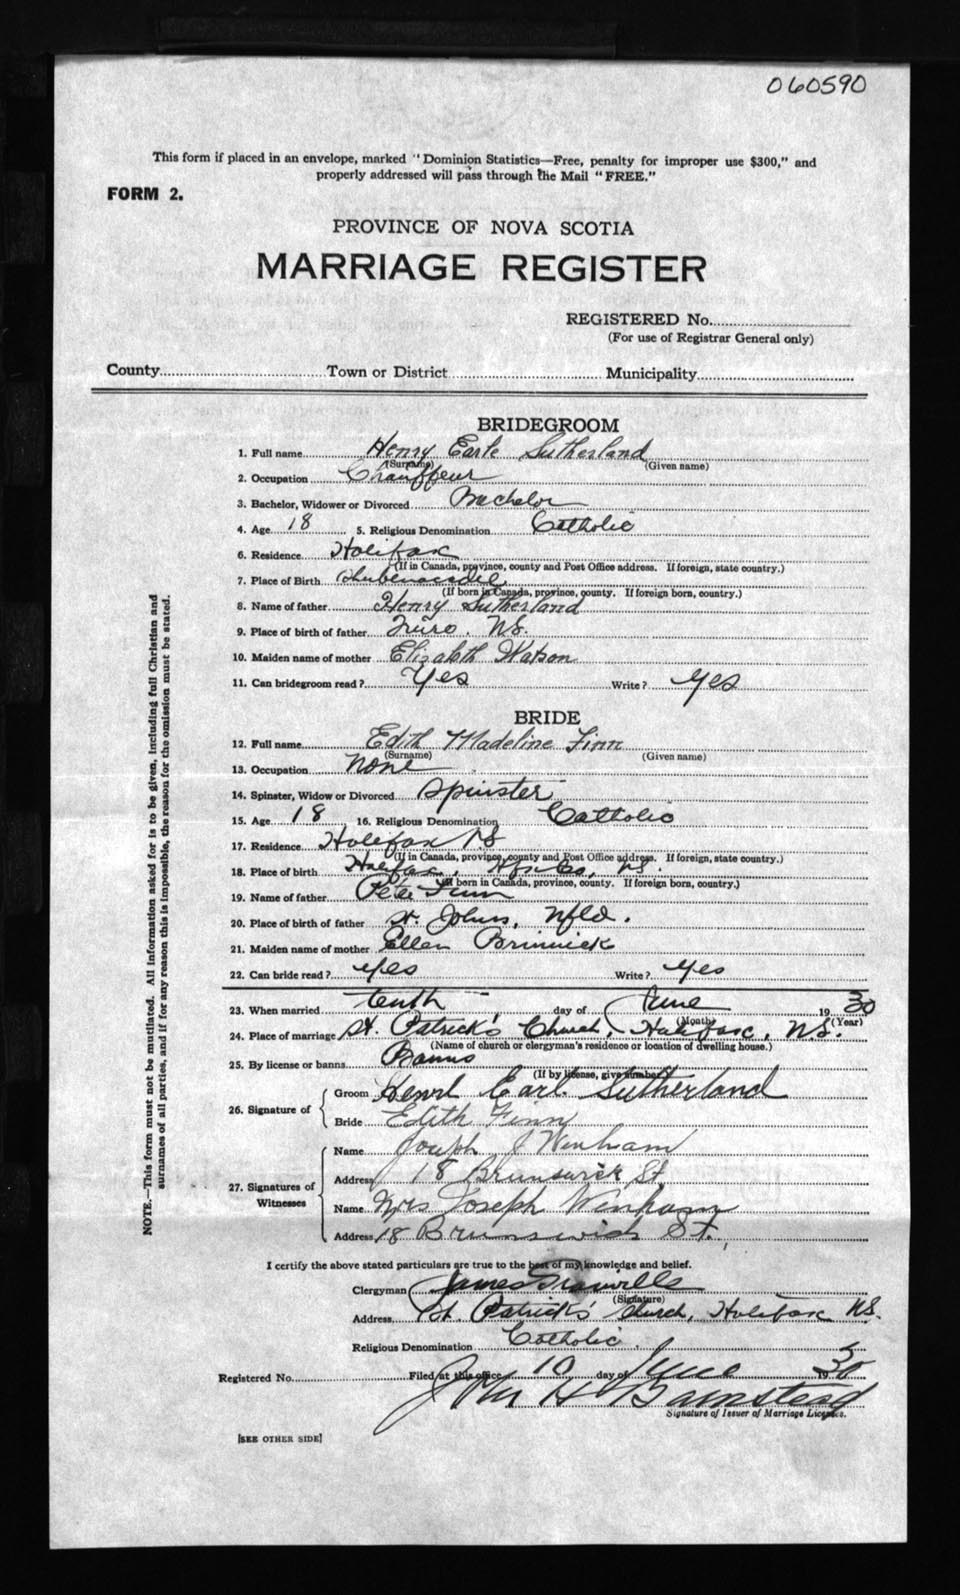 060590
This form if placed in an envelope, marked "Dominion Statistics—Free, penalty for improper use $300," and
properly addressed will pass through the Mail "FREE."
FORM 2.
PROVINCE OF NOVA SCOTIA
MARRIAGE REGISTER
REGISTERED No.
(For use of Registrar General only)
County Town or District Municipality
BRIDEGROOM
1. Full name Henry Earle Sutherland
(Surname) (Given name)
2. Occupation Chauffeur
3. Bachelor, Widower or Divorced Bachelor
4. Age 18 5. Religious Denomination Catholic
6. Residence Halifax
(If in Canada, province, county and Post Office address. If foreign, state country.)
7. Place of Birth
(If born in Canada, province, county. If foreign born, country.)
8. Name of father Henry Sutherland
9. Place of birth of father Truro, NS.
10. Maiden name of mother Elizabeth Watson
11. Can bridegroom read? Yes Write? Yes
BRIDE
12. Full name Edith Madeline Finn
(Surname) (Given name)
13. Occupation None
14. Spinster, Widow or Divorced Spinster
15. Age 18 16. Religious Denomination Catholic
17. Residence Halifax NS
(If in Canada, province, county and Post Office address. If foreign, state country.)
18. Place of birth Halifax, Hfx Co, NS.
(If born in Canada, province, county. If foreign born, country.)
19. Name of father Peter Finn
20. Place of birth of father St. Johns, Nfld.
21. Maiden name of mother Ellen
22. Can bride read? Yes Write? Yes
23. When married tenth day of June 1930
(Month) (Year)
24. Place of marriage St. Patrick's Church, Halifax, N.S.
(Name of church or clergyman's residence or location of dwelling house.)
25. By license or banns Banns
(If by license, give number)
26. Signature of
Groom Henry Earl Sutherland
Bride Edith Finn
27. Signatures of Witnesses
Name Joseph J Winham
Address 18 Brunswick St.
Name Mrs Joseph Winham
Address 18 Brunswick St.
I certify the above stated particulars are true to the best of my knowledge and belief.
Clergyman James Granville
(Signature)
Address St. Patrick's Church, Halifax NS.
Religious Denomination Catholic.
Registered No. Filed at this office 10 day of June 1930
John H Barnstead
Signature of Issuer of Marriage Licenses.
[SEE OTHER SIDE]
NOTE.—This form must not be mutilated. All information asked for is to be given, including full Christian and
surnames of all parties, and if for any reason this is impossible, the reason for the omission must be stated.